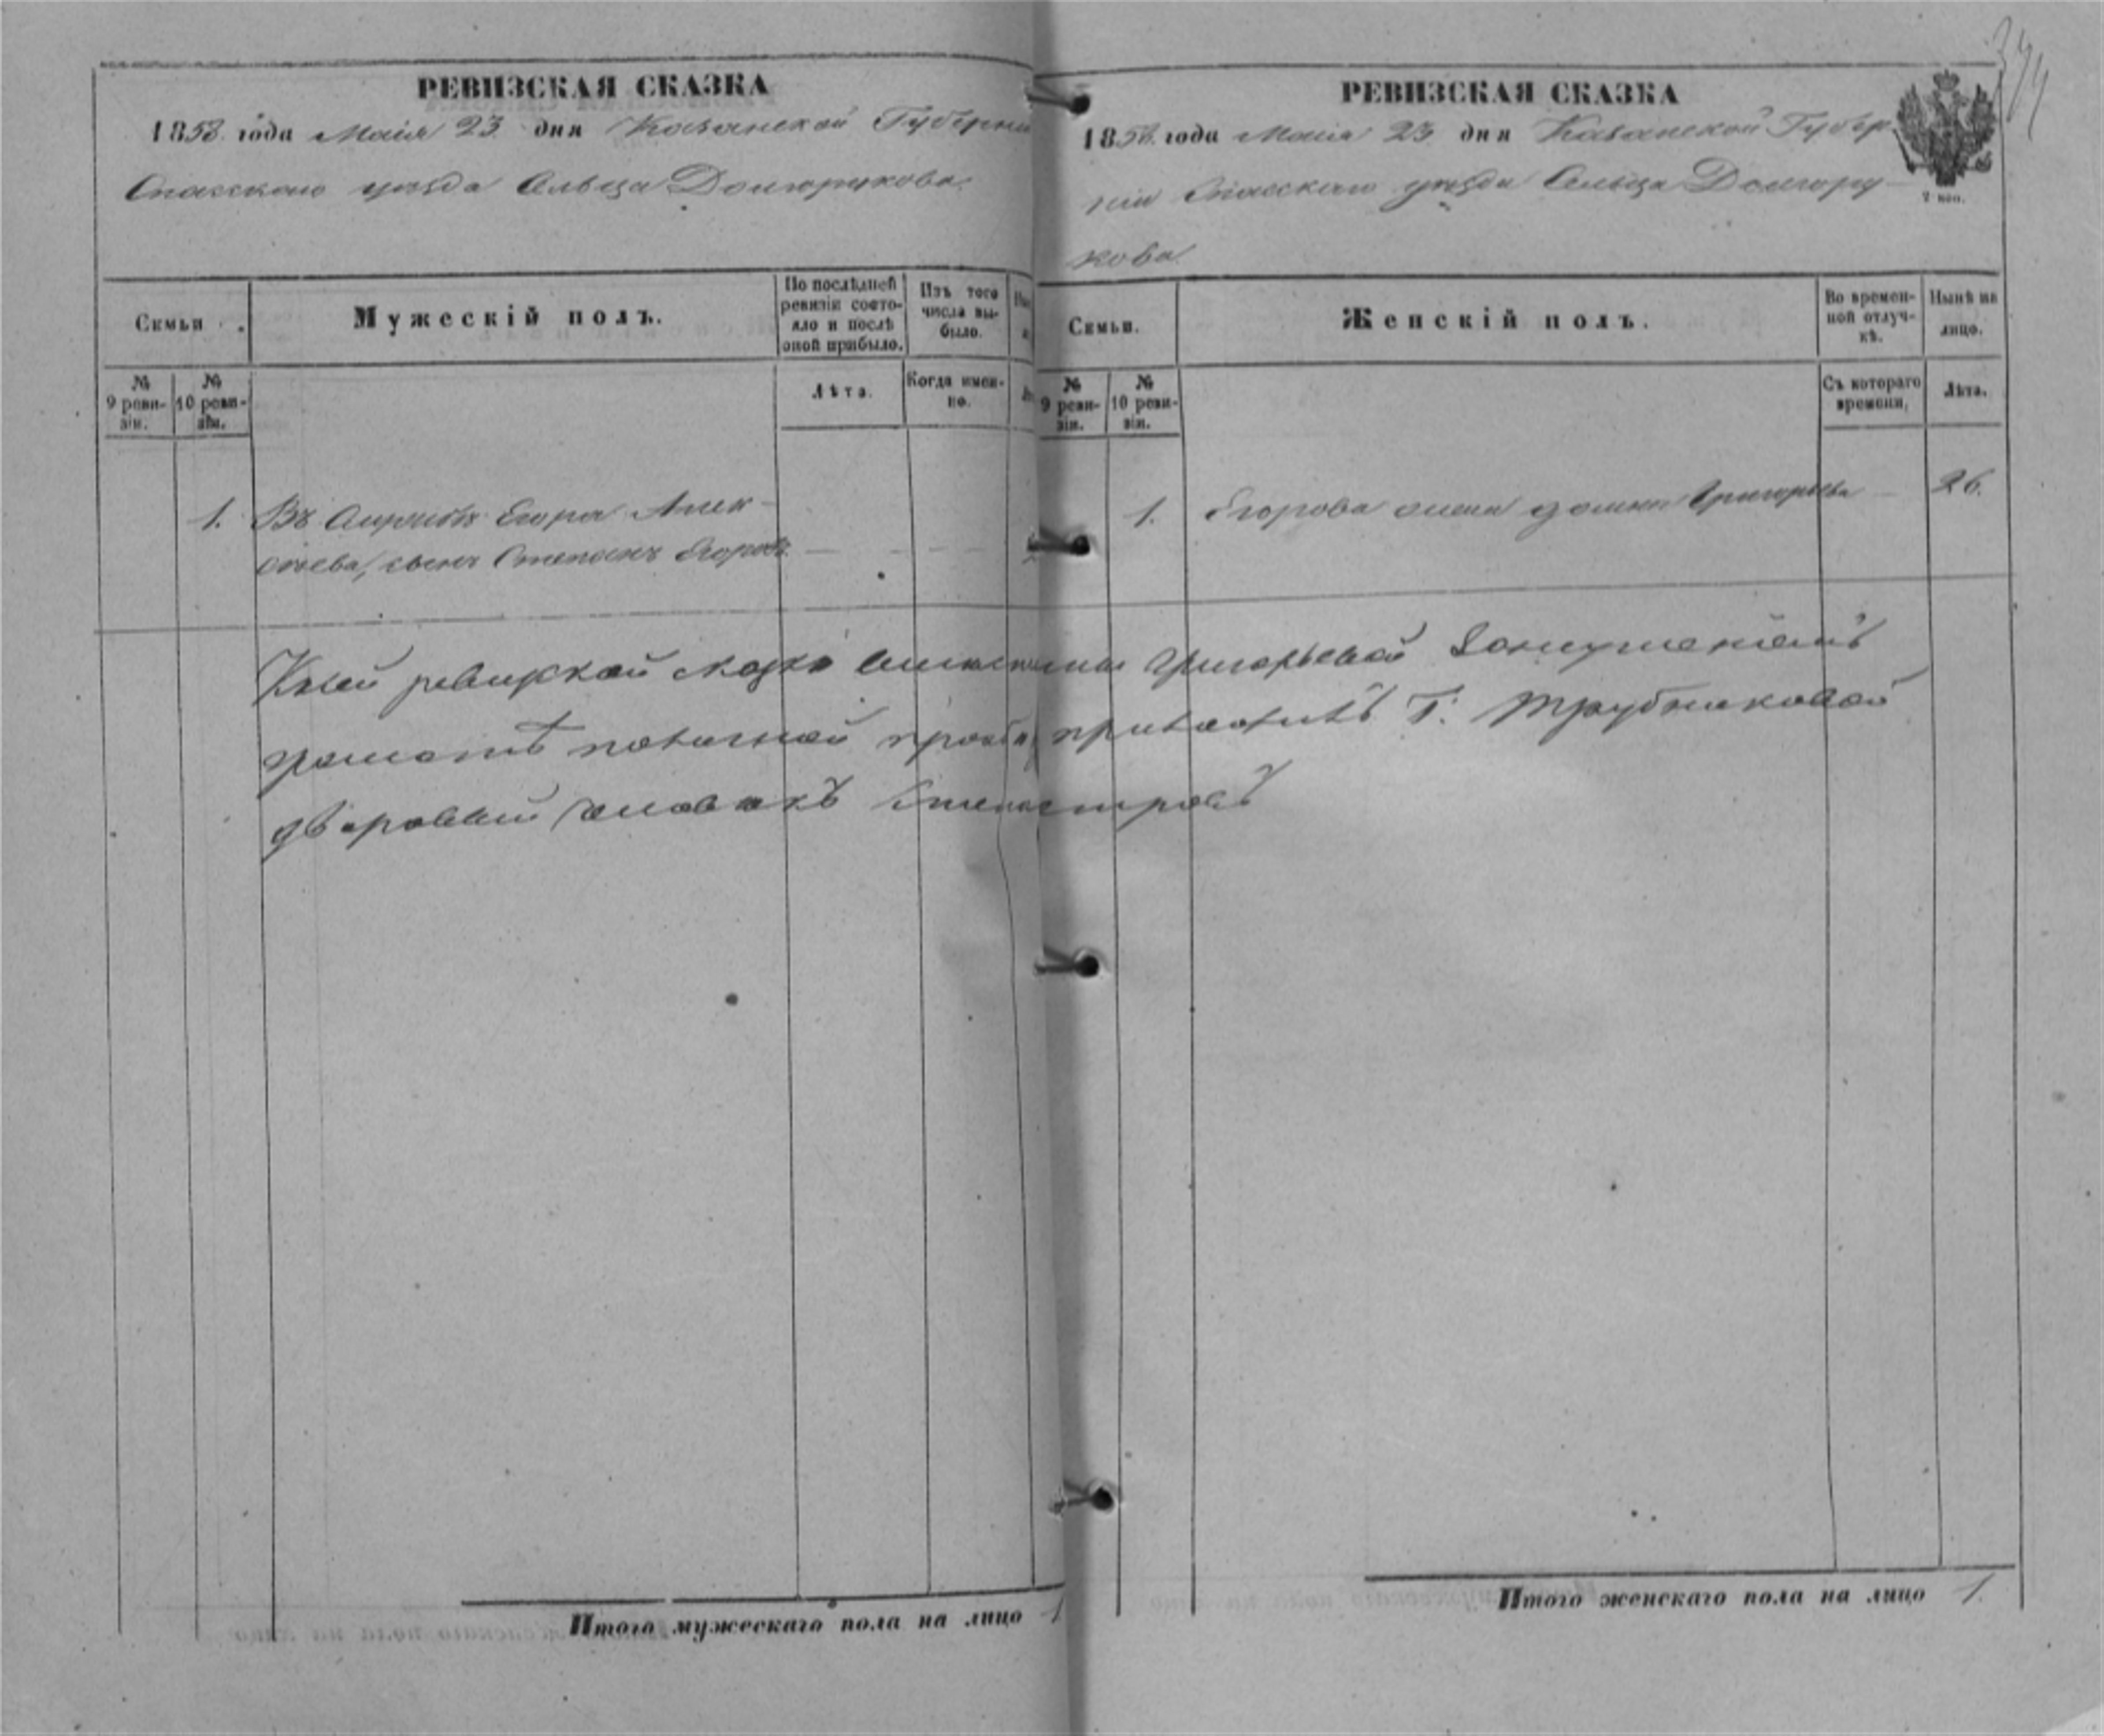 РЕВИЗСКАЯ СКАЗКА
1858 года Маія 23 дня Казанской Губерніи
Спасскаго уѣзда Сельца Долгорукова.
Семьи.
Мужескій полъ.
По послѣдней ревизіи состояло и послѣ оной прибыло.
Изъ того числа выбыло.
№ 9 ревизіи.
№ 10 ревизіи.
Лѣта.
Когда именно.
1. Егора Алек-
сѣева, сынъ Степанъ Егоровъ — — — —
Итого мужескаго пола на лицо 1
344
РЕВИЗСКАЯ СКАЗКА
1858 года Маія 23 дня Казанской Губер-
ніи Спасскаго уѣзда Сельца Долгору-
кова
7 коп.
Семьи.
Женскій полъ.
Во временной отлучкѣ.
Нынѣ на лицо.
№ 9 ревизіи.
№ 10 ревизіи.
Съ котораго времени.
Лѣта.
1. Егорова жена Григорьева — 26.
Ксей ревизкой Григорьевой
грамотѣ Г. Трубниковой
дворовый человекъ
Итого женскаго пола на лицо 1.